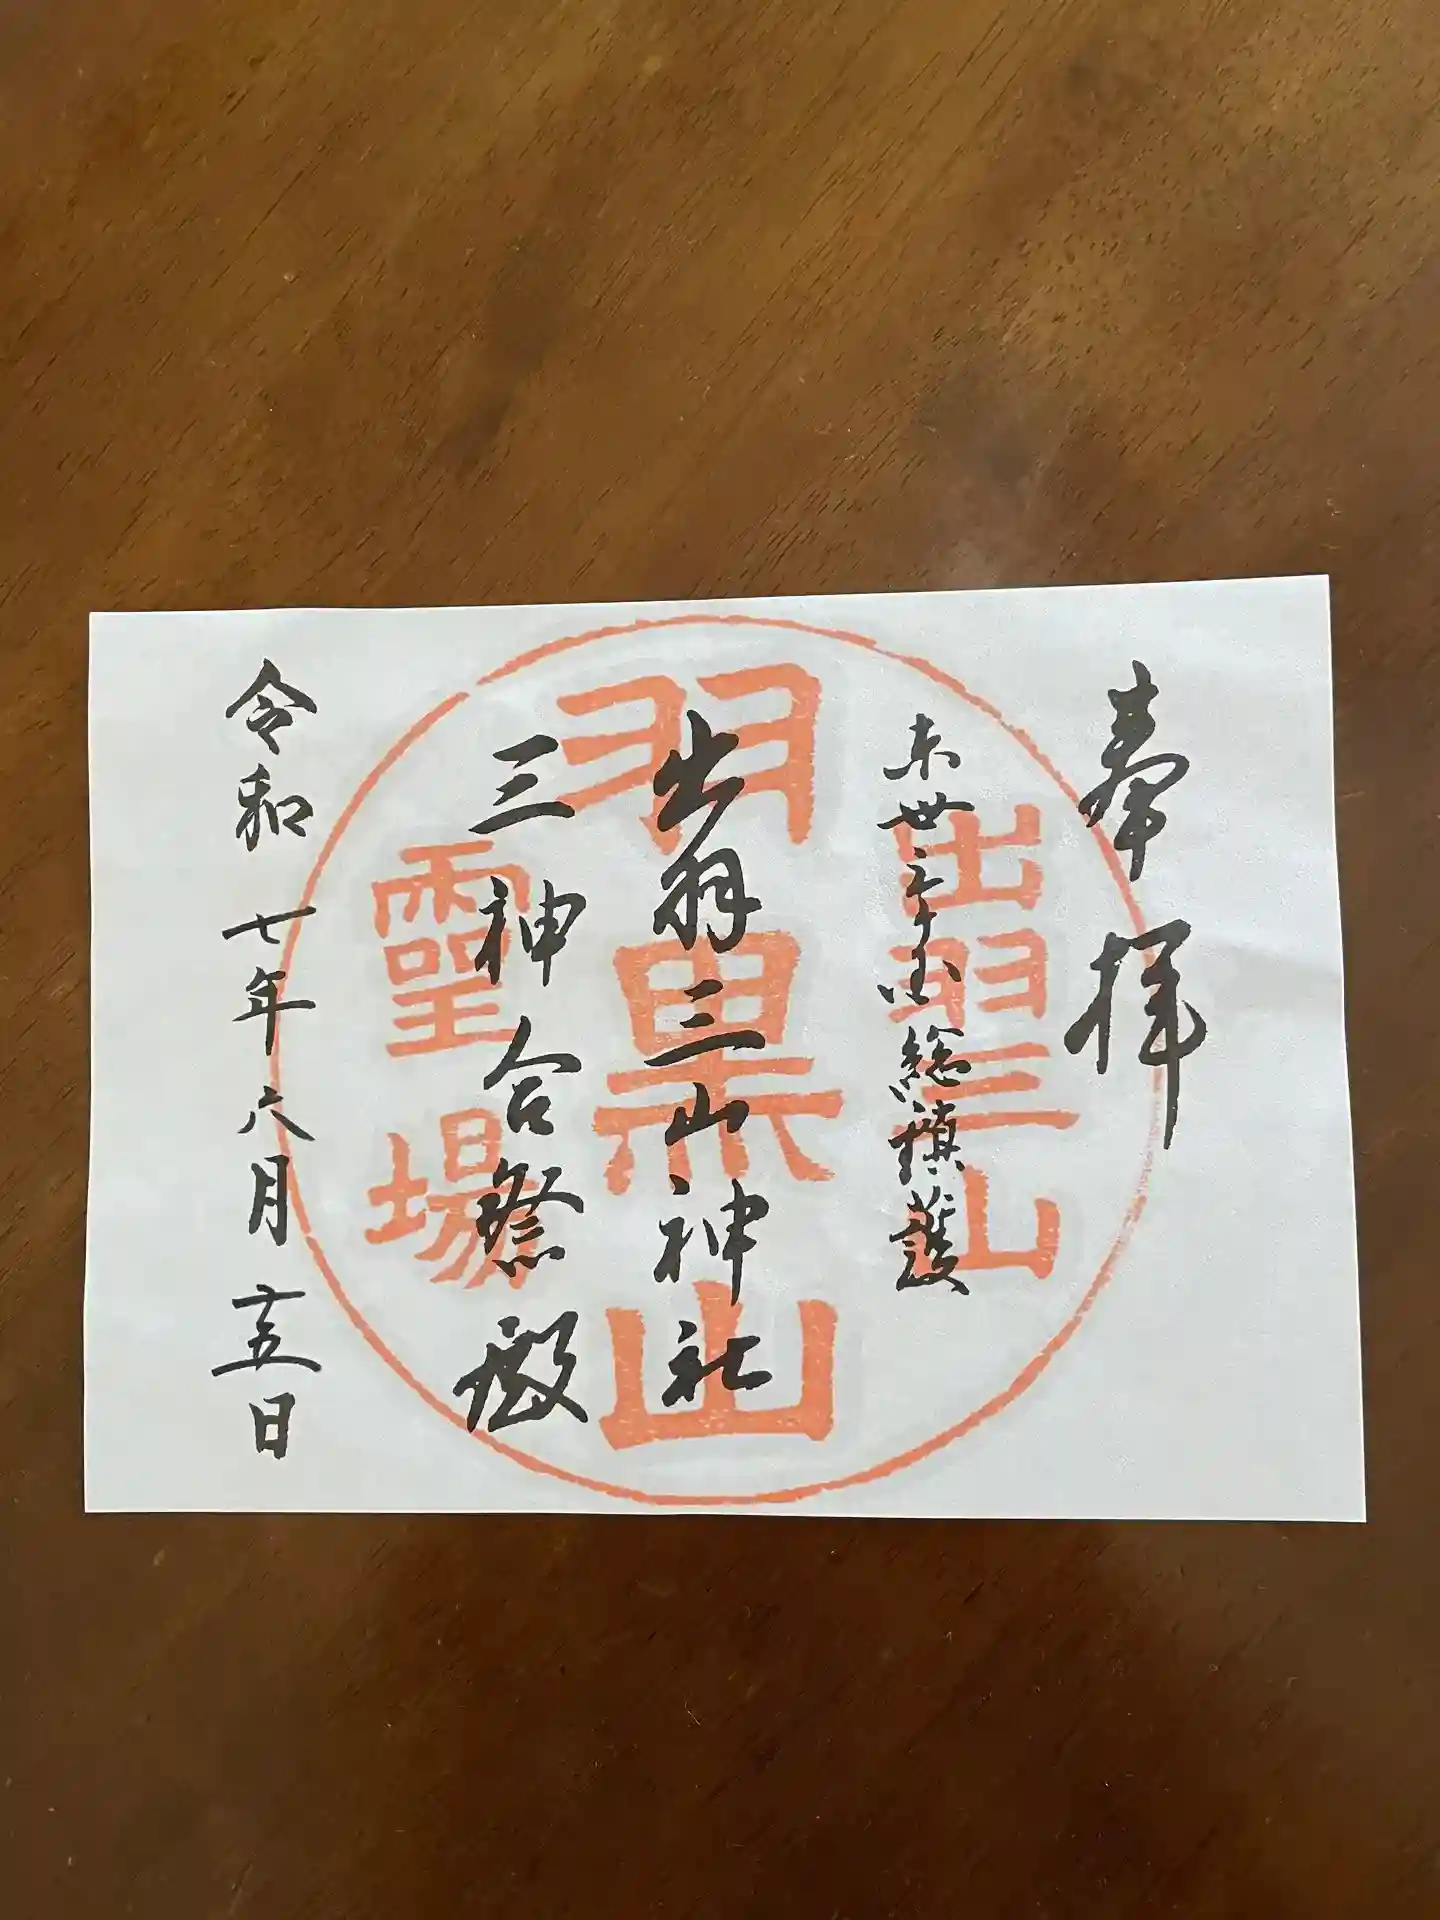 奉拝
東卅三ヶ国総鎮護
出羽三山神社
三神合祭殿
令和七年六月十五日
出羽三山
羽黒山
靈場